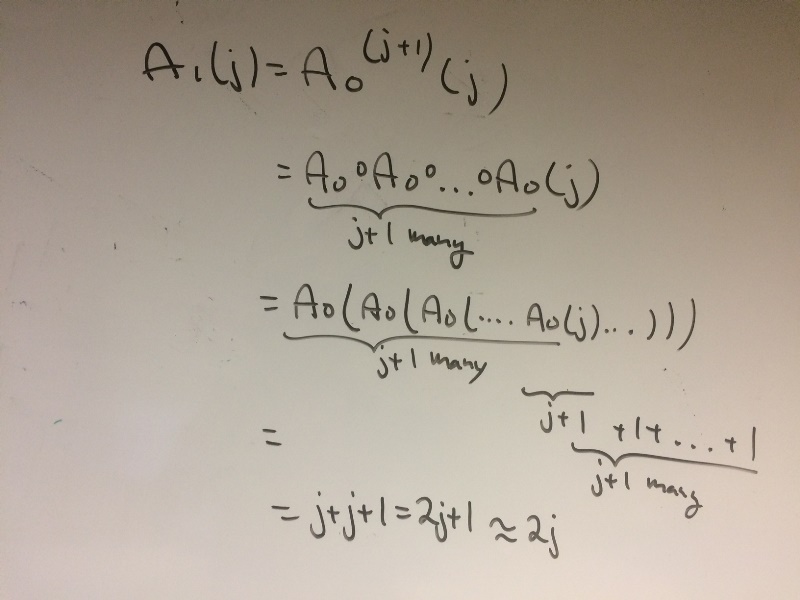 A₁(j) = A₀^(j+1) (j)
= A₀∘A₀∘...∘A₀(j)
j+1 many
= A₀(A₀(A₀(.... A₀(j)...)))
j+1 many
= j+1 +1+...+1
j+1 many
= j+j+1 = 2j+1 ≈ 2j